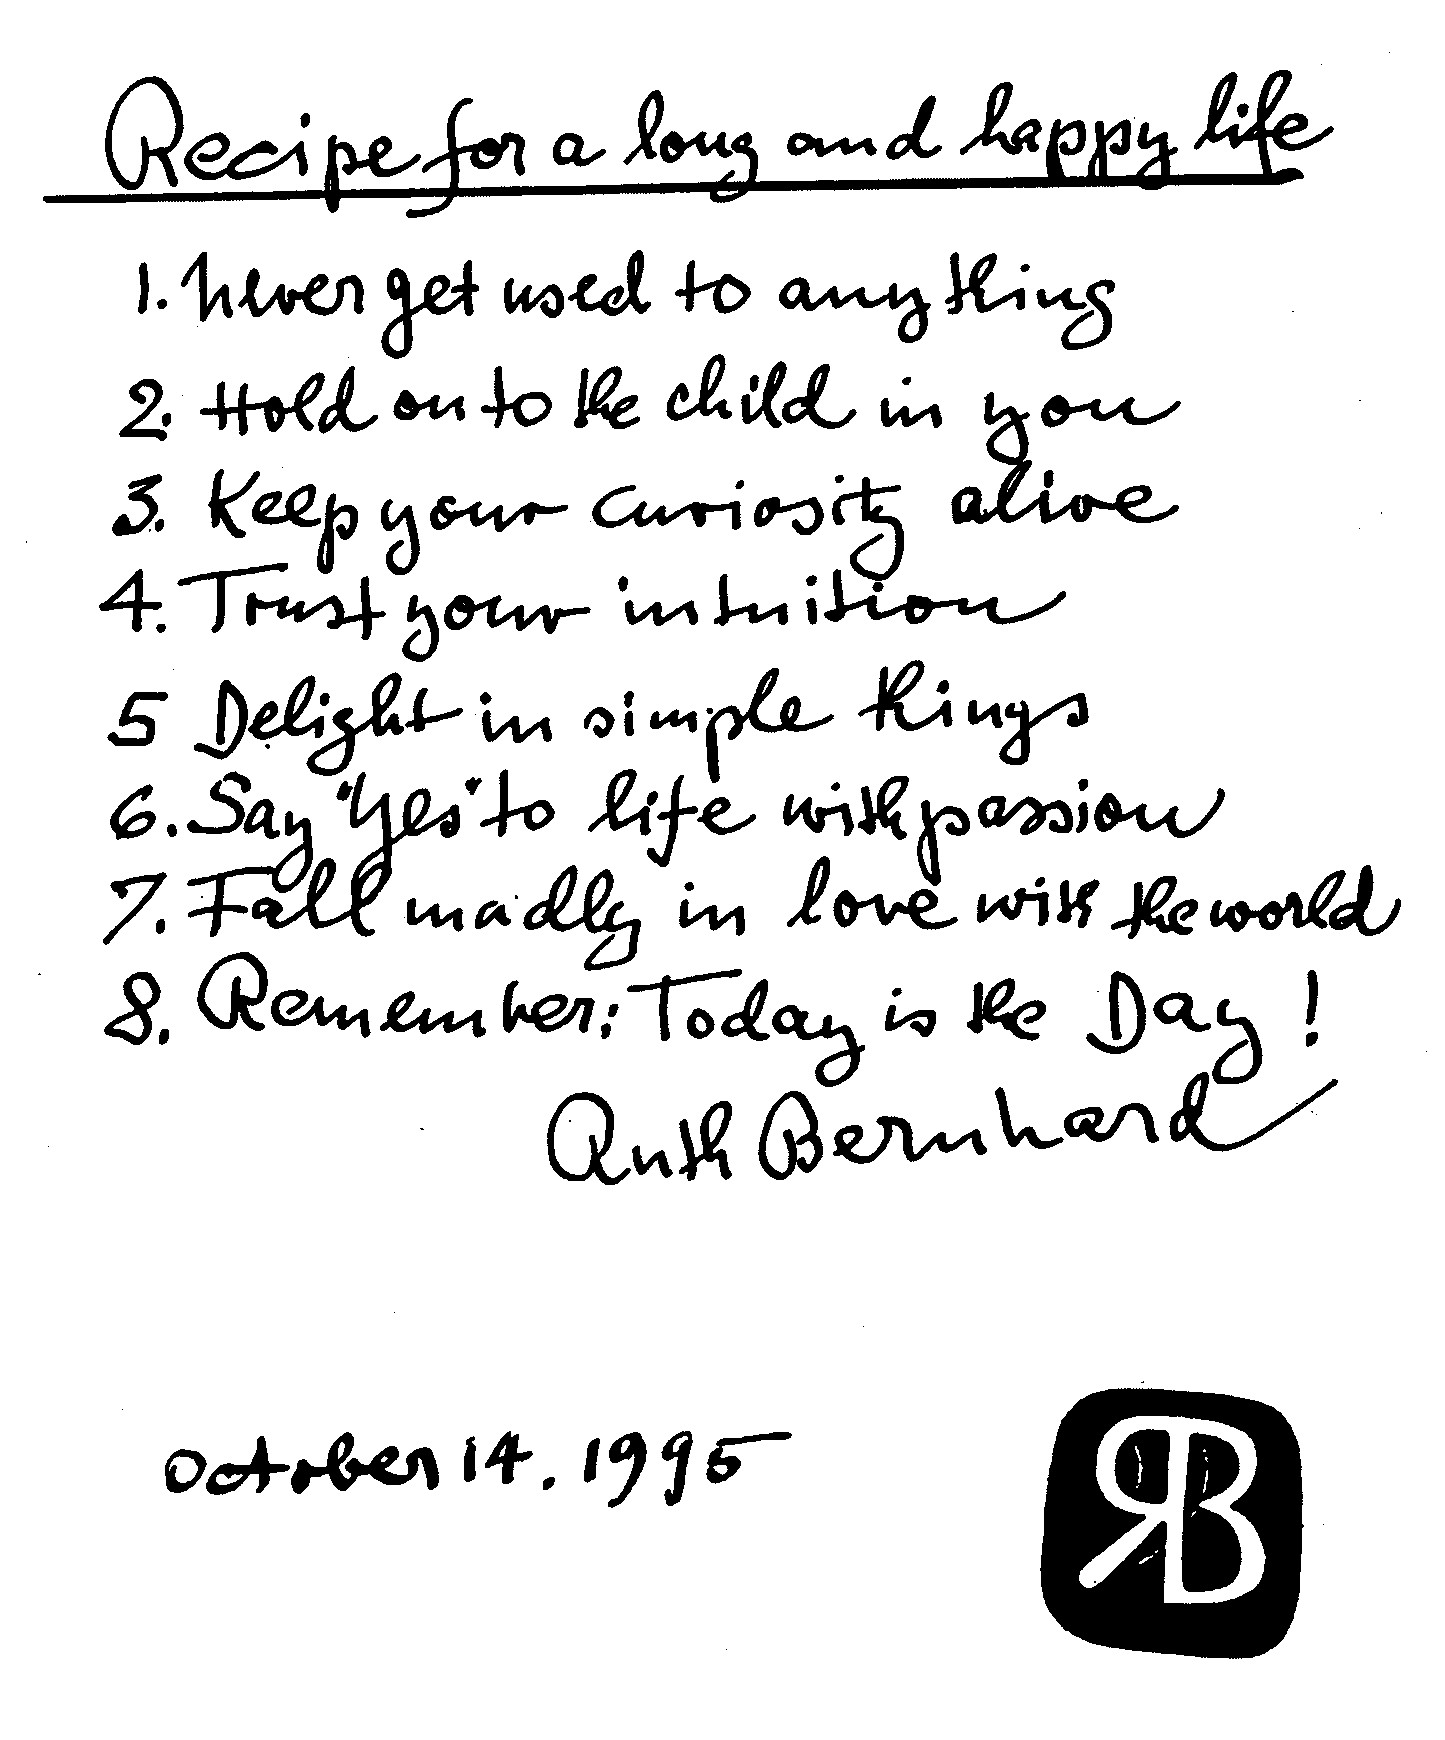 Recipe for a long and happy life
1. Never get used to anything
2. Hold on to the child in you
3. Keep your curiosity alive
4. Trust your intuition
5 Delight in simple things
6. Say "Yes" to life with passion
7. Fall madly in love with the world
8. Remember: Today is the Day!
Ruth Bernhard
October 14. 1995
RB